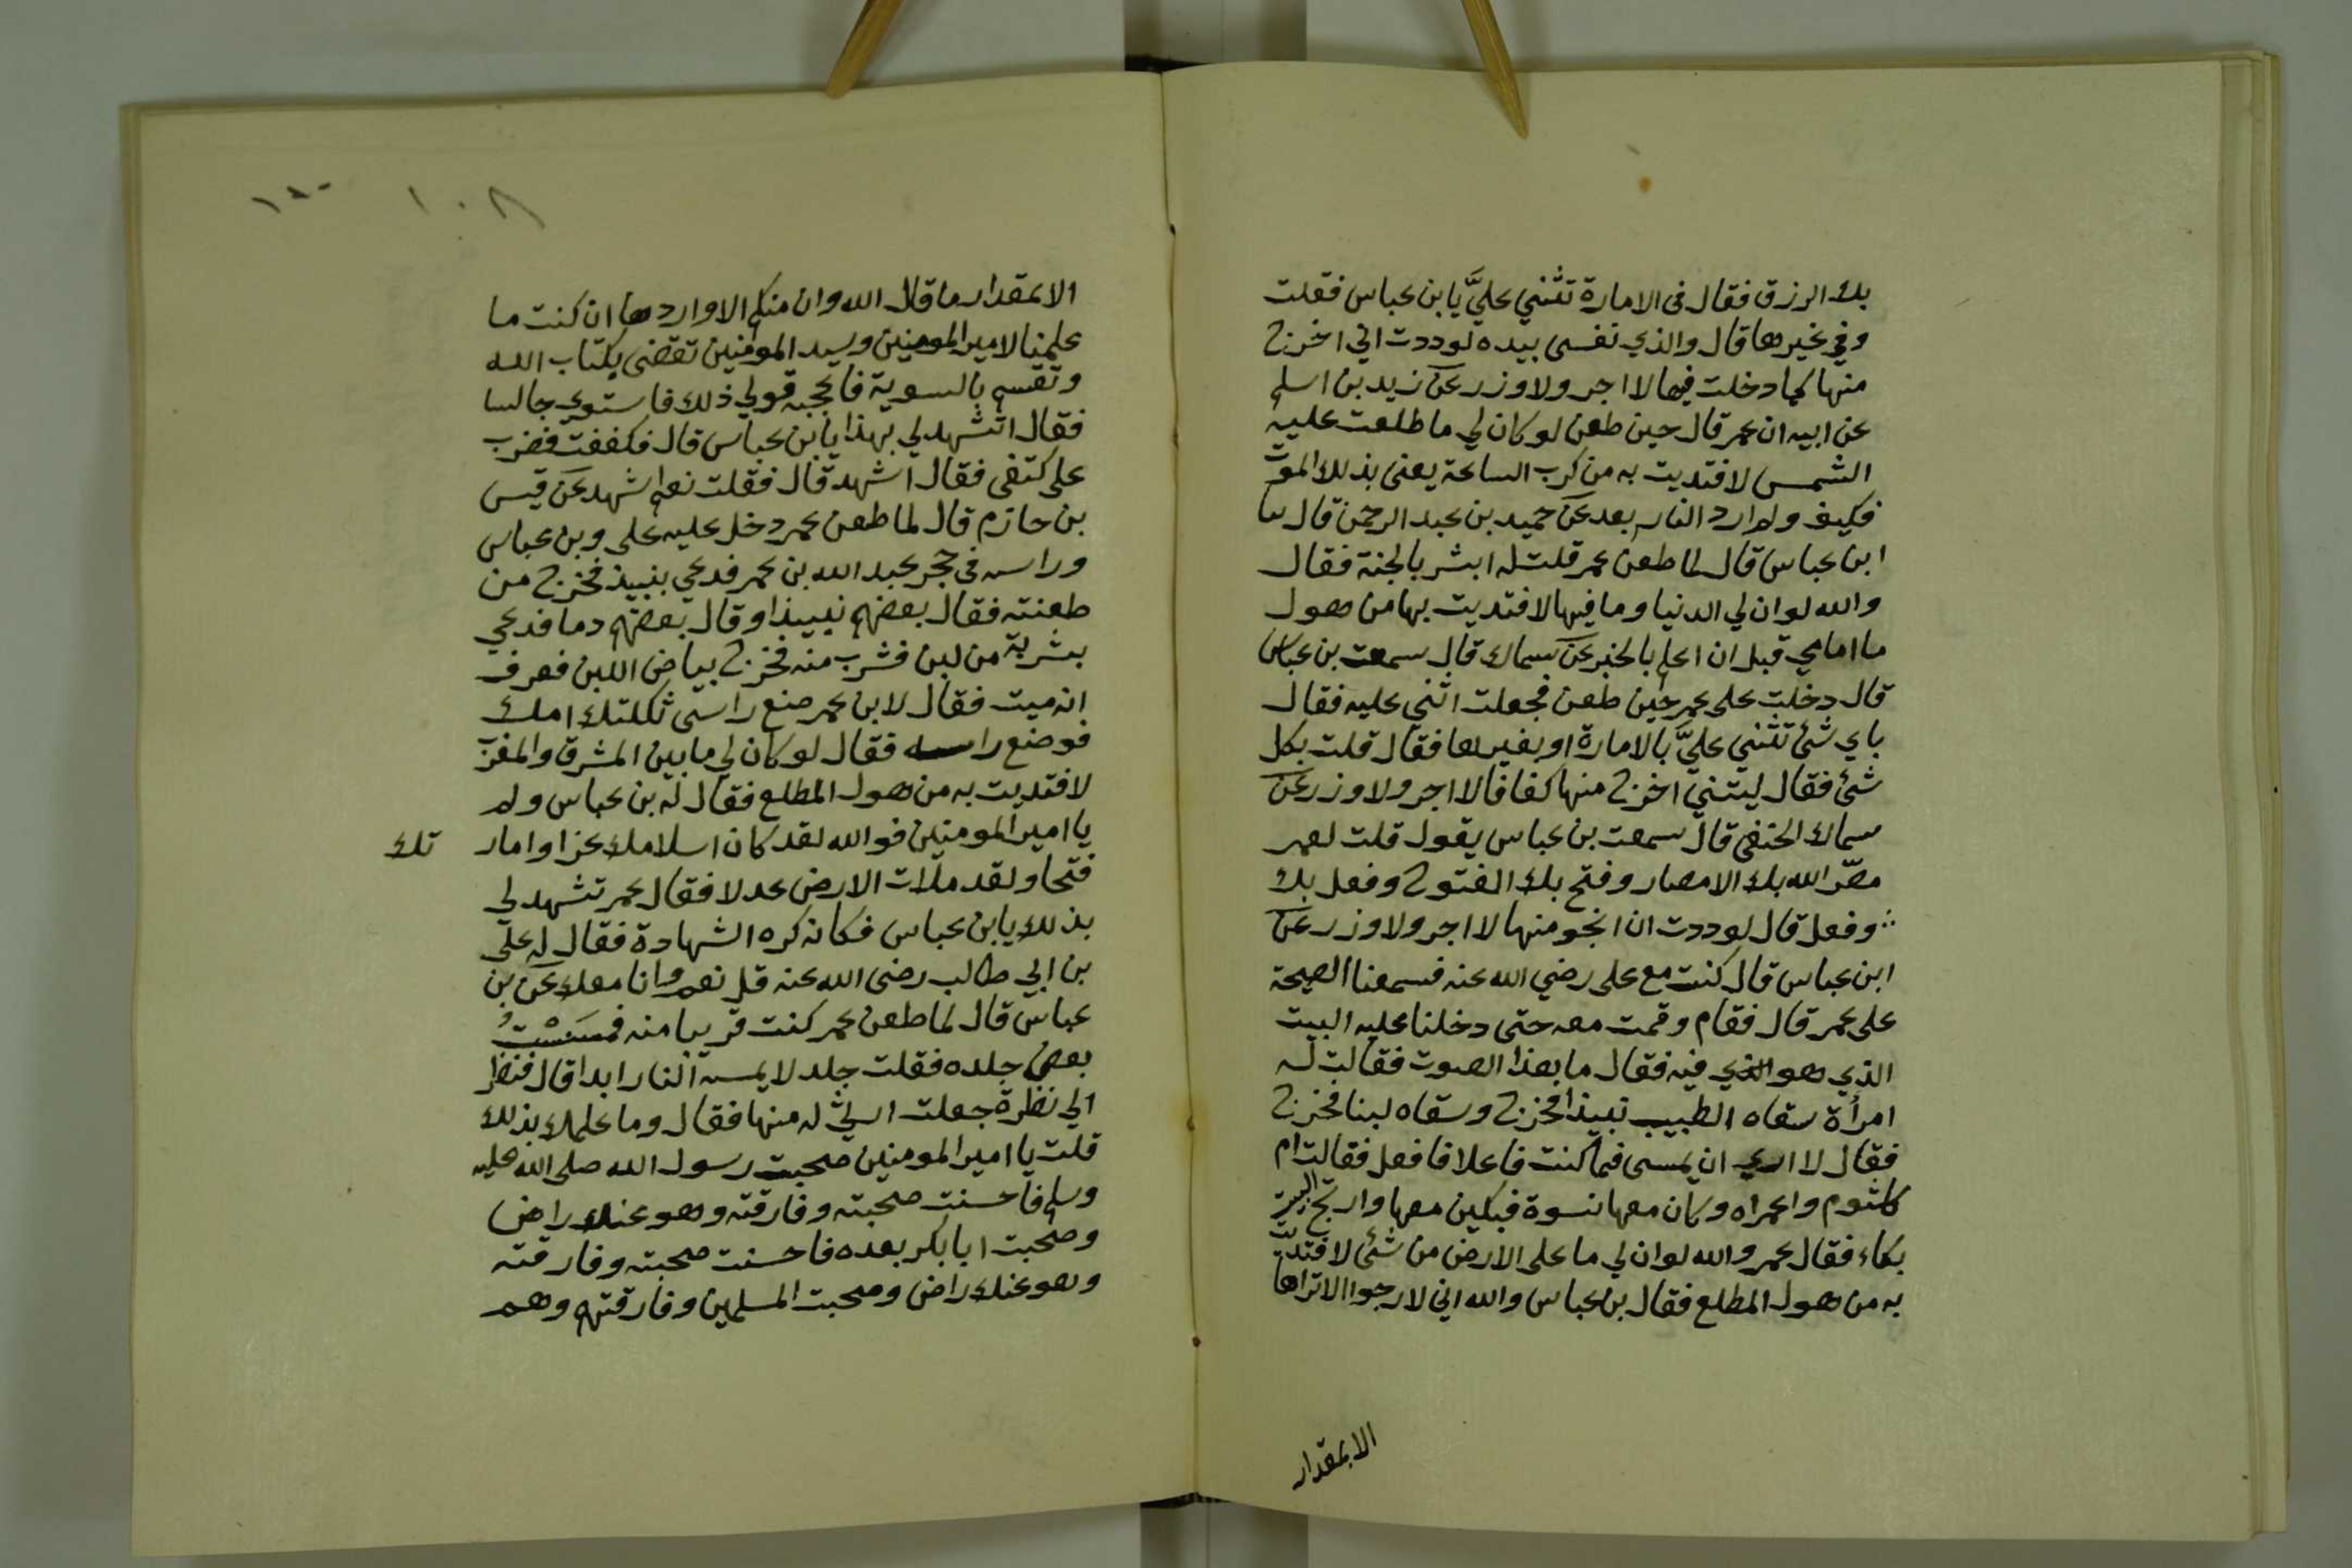 بك الرزق فقال فى الامارة تثنني عليَّ يا بن عباس فقلت
وفي غيرها قال والذي نفسي بيده لوددت اني اخرج
منها كما دخلت فيها لا اجر ولا وزر عن زيد بن اسلم
عن ابيه ان عمر قال حين طعن لو كان لي ما طلعت عليه
الشمس لافتديت به من كرب الساعة يعنى بذلك الموت
فكيف ولم ارد النار بعد عن حميد بن عبد الرحمن قال سا
ابن عباس قال لما طعن عمر قلت له ابشر بالجنة فقال
والله لو ان لي الدنيا وما فيها لافتديت بها من هول
ما امامي قبل ان اعلم بالخبر عن سماك قال سمعت بن عباس
قال دخلت على عمر حين طعن فجعلت اثني عليه فقال
باي شئ تثنني عليَّ بالامارة او بغيرها فقال قلت بكل
شئ فقال ليتني اخرج منها كفافا لا اجر ولا وزر عن
سماك الحنفي قال سمعت بن عباس يقول قلت لعمر
مصّر الله بك الامصار وفتح بك الفتوح وفعل بك
وفعل قال لوددت ان انجو منها لا اجر ولا وزر عن
ابن عباس قال كنت مع على رضي الله عنه فسمعنا الصيحة
على عمر قال فقام وقمت معه حتى دخلنا عليه البيت
الذي هو الذي فيه فقال ما هذا الصوت فقالت له
امرأة سقاه الطبيب نبيذا فخرج وسقاه لبنا فخرج
فقال لا ارى ان يمسى فما كنت فاعلا فافعل فقالت ام
كلثوم واعمراه وكان معها نسوة فبكين معها وارتج البيت
بكاء فقال عمر والله لو ان لي ما على الارض من شئ لافتديت
به من هول المطلع فقال بن عباس والله اني لارجوا الا تراها
الابمقدار
١٠٨
الابمقدار ما قال الله وان منكم الا واردها ان كنت ما
علمنا لامير المومنين وسيد المومنين تقضى بكتاب الله
وتقسم بالسوية فاعجبه قولي ذلك فاستوى جالسا
فقال اتشهد لي بهذا يا بن عباس قال فكففت فضرب
على كتفى فقال اشهد قال فقلت نعم اشهد عن قيس
بن حازم قال لما طعن عمر دخل عليه على وبن عباس
وراسه في حجر عبد الله بن عمر فدعي بنبيذ فخرج من
طعنته فقال بعضهم نبيذا وقال بعضهم دما فدعي
بشربة من لبن فشرب منه فخرج بياض اللبن فعرف
انه ميت فقال لابن عمر ضع راسى ثكلتك امك
فوضع راسه فقال لو كان لي ما بين المشرق والمغرب
لافتديت به من هول المطلع فقال له بن عباس ولم
يا امير المومنين فوالله لقد كان اسلامك عزا وامار تك
فتحا ولقد ملأت الارض عدلا فقال عمر تشهد لي
بذلك يا بن عباس فكانه كره الشهادة فقال له على
بن ابي طالب رضى الله عنه قل نعم وانا معك عن بن
عباس قال لما طعن عمر كنت قريبا منه فمسَسْتُ
بعض جلده فقلت جلد لا يمسه النار ابدا قال فنظر
الي نظرة جعلت ارثي له منها فقال وما علمك بذلك
قلت يا امير المومنين صحبت رسول الله صلى الله عليه
وسلم فاحسنت صحبته وفارقته وهو عنك راض
وصحبت ابا بكر بعده فاحسنت صحبته وفارقته
وهو عنك راض وصحبت المسلمين وفارقتهم وهم